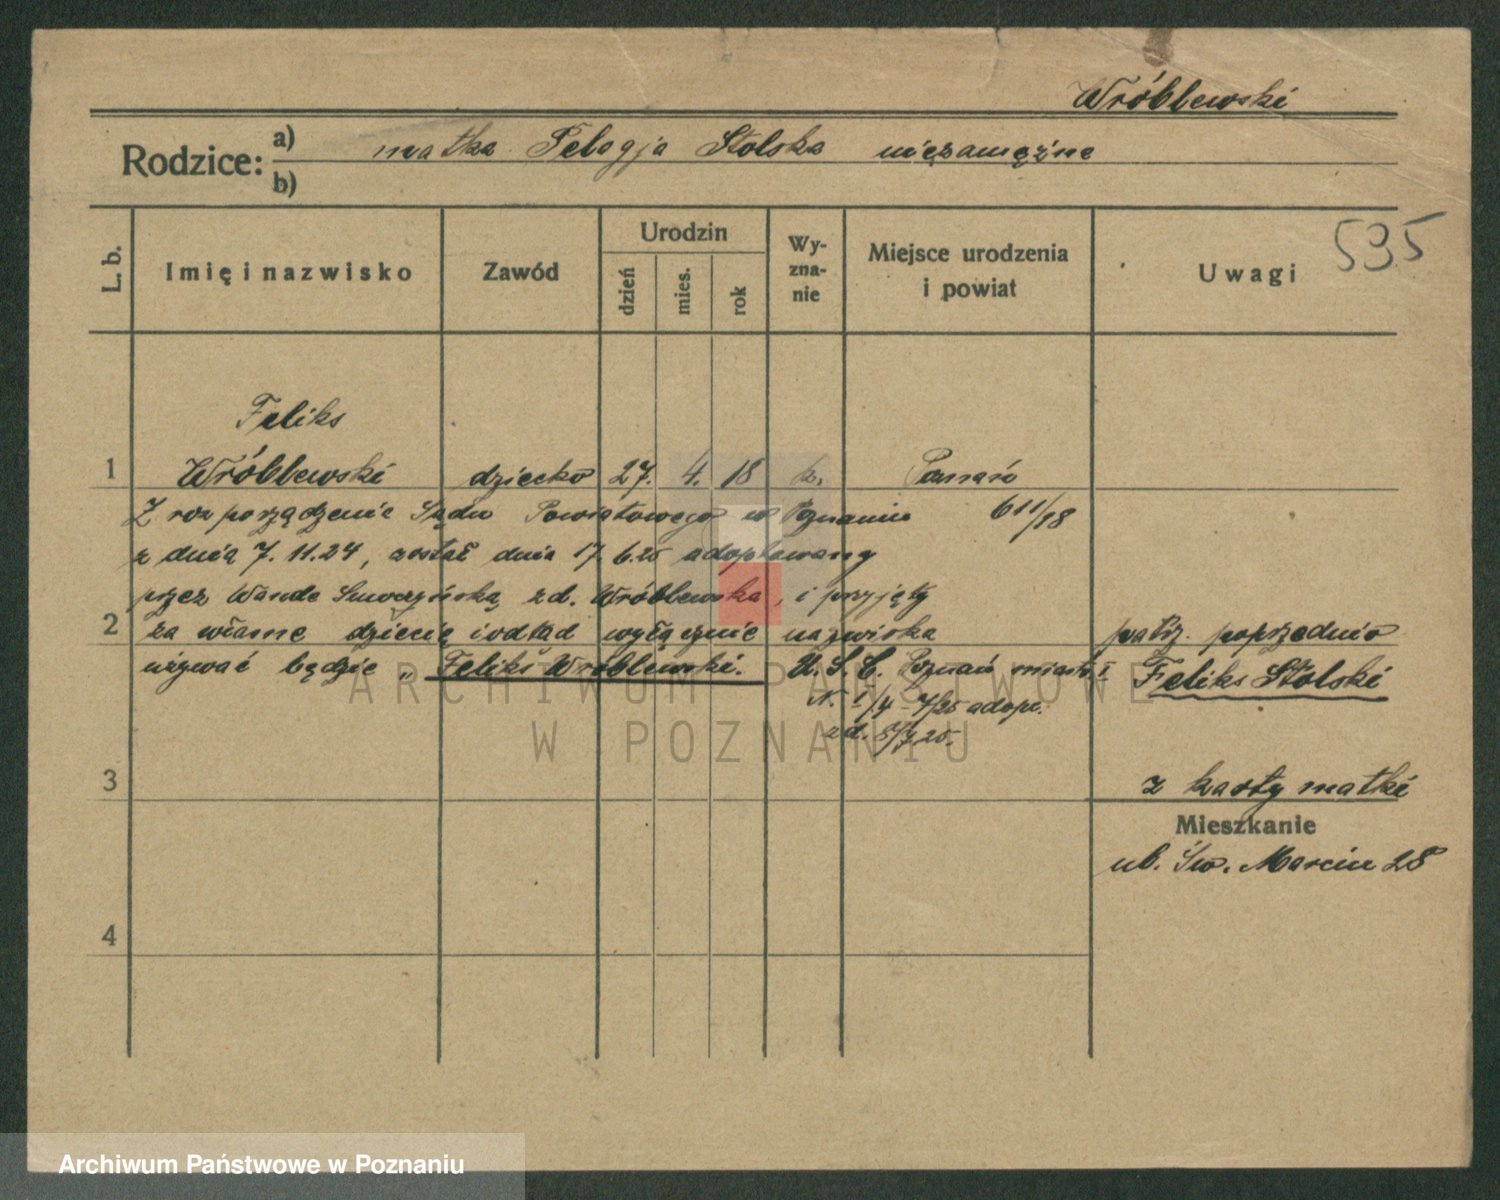 Wróblewski
Rodzice: a) matka Pelagja Stolska niezamężne
b)
L. b.
Imię i nazwisko
Zawód
Urodzin
dzień
mies.
rok
Wy-
zna-
nie
Miejsce urodzenia
i powiat
Uwagi
535
Feliks
1 Wróblewski dziecko 27. 4. 18 k. Poznań
Z rozporządzenie Sądu Powiatowego w Poznaniu 611/18
z dnia 7.11.24, został dnia 17.6.25 adoptowany
przez Wande zd. Wróblewska, i przyjęty
2 za własne dziecię i odtąd wyłącznie nazwiska
używać będzie „Feliks Wróblewski.
U. S. C. Poznań miasto I
N. 1/4 - 7/25 adopt.
zd. 5/7 25.
patrz. poprzednio
Feliks Stolski
3
z karty matki
Mieszkanie
ul. Św. Marcin 28
4
ARCHIWUM PAŃSTWOWE
W POZNANIU
Archiwum Państwowe w Poznaniu